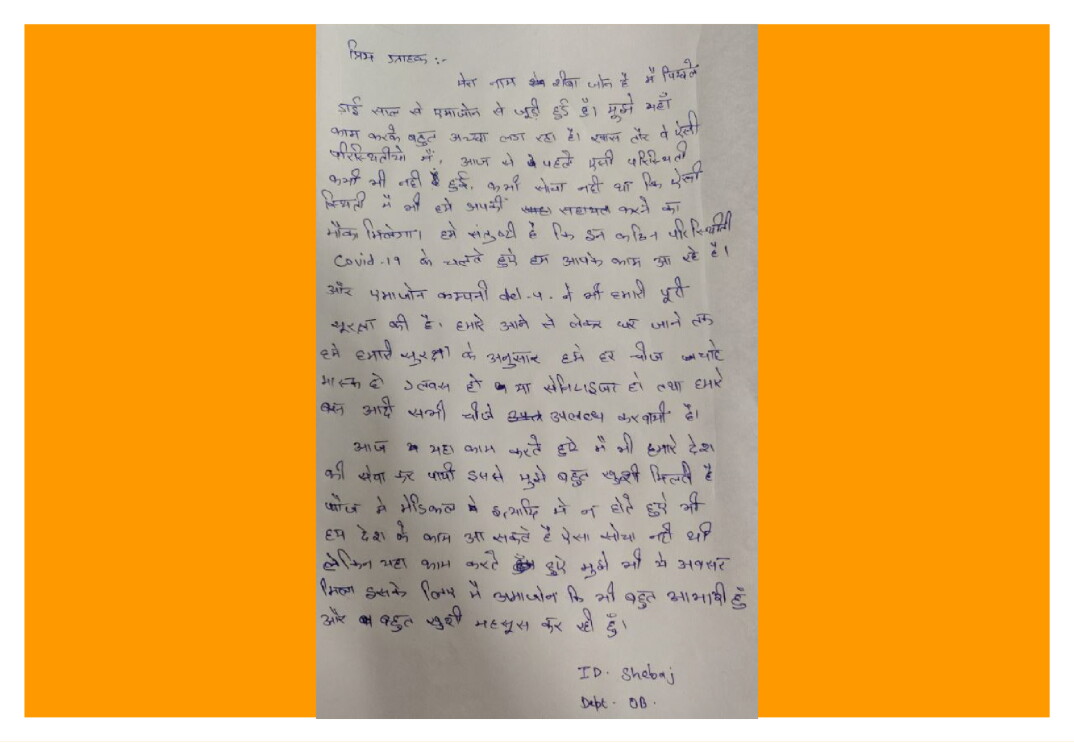 प्रिय ग्राहक :-
मेरा नाम शीबा जोन है मैं पिछले
ढाई साल से एमाजोन से जुड़ी हुई हूँ। मुझे यहाँ
काम करके बहुत अच्छा लग रहा है। खास तौर पे ऐसी
परिस्थितीयो में, आज से पहले ऐसी परिस्थिती
कभी भी नही हुई, कभी सोचा नही था कि ऐसी
स्थिती में भी हमे आपकी सहायता करने का
मौका मिलेगा। हमे संतुष्टी है कि इन कठिन परिस्थिती
Covid-19 के चलते हुऐ हम आपके काम आ रहे है।
और एमाजोन कम्पनी del-4. ने भी हमारी पूरी
सुरक्षा की है। हमारे आने से लेकर घर जाने तक
हमे हमारी सुरक्षा के अनुसार हमे हर चीज चाहे
मास्क हो ग्लवस हो या सेनिटाइजर हो तथा हमारे
आदी सभी चीजे उपलब्ध करवायी है।
आज यहा काम करते हुऐ मैं भी हमारे देश
की सेवा कर पायी इससे मुझे बहुत खुशी मिलती है
फौज मे मेडिकल इत्यादि मे न होते हुऐ भी
हम देश के काम आ सकते है ऐसा सोचा नही थी
लेकिन यहा काम करते हुऐ मुझे भी ये अवसर
मिला इसके लिए मैं अमाजोन कि भी बहुत आभारी हुँ
और बहुत खुशी महसूस कर रही हुँ।
ID. Shebaj
Dept. OB.